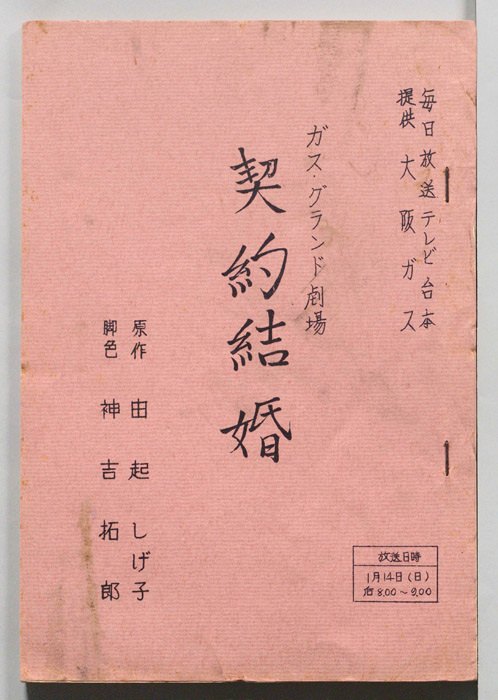 毎日放送テレビ台本
提供 大阪ガス
ガス・グランド劇場
契約結婚
原作 由起しげ子
脚色 神吉拓郎
放送日時
1月14日(日)
后8.00~9.00